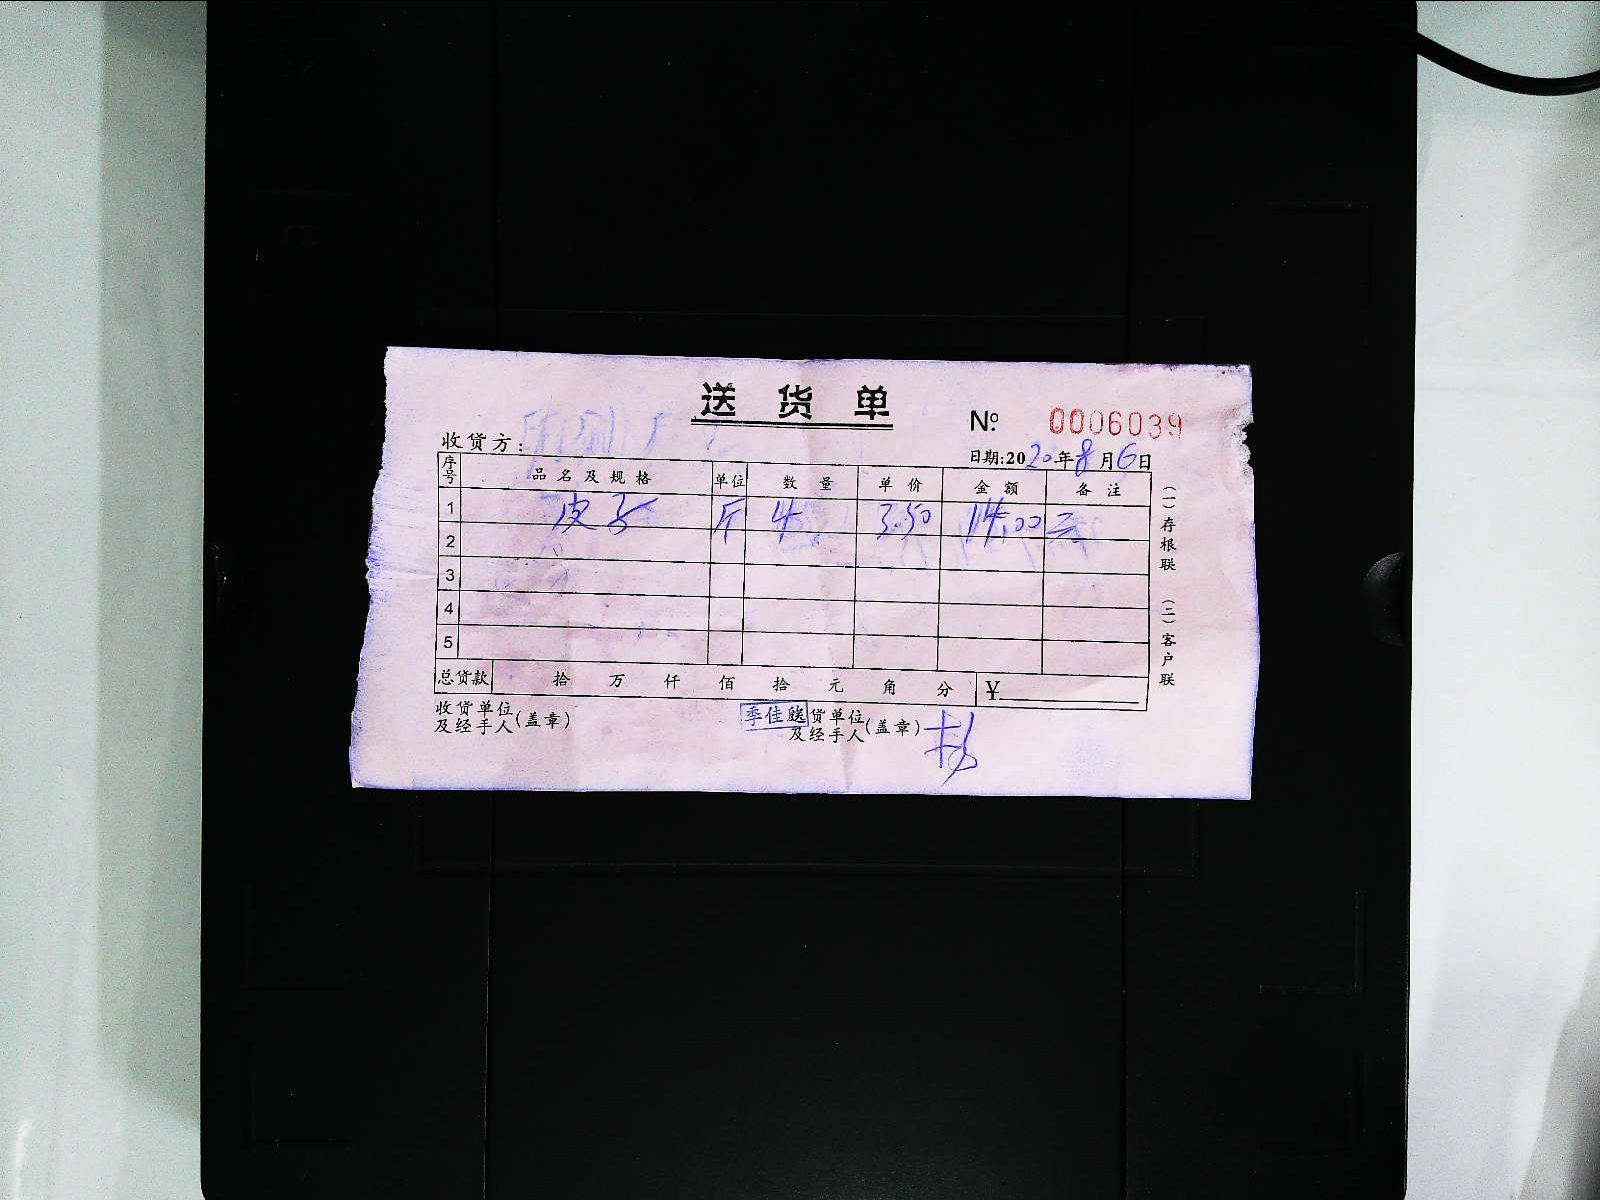 送货单
№ 0006039
收货方：
日期:2020年8月6日
序号 品名及规格 单位 数量 单价 金额 备注
1 皮子 斤 4 3.50 14.00 元
2
3
4
5
总货款 拾 万 仟 佰 拾 元 角 分 ¥
收货单位及经手人(盖章)
季佳
货单位及经手人(盖章)
(一)存根联 (二)客户联